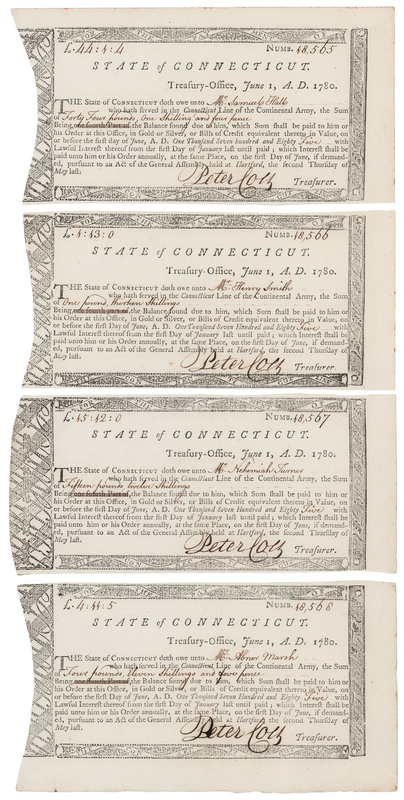 L. 44:1:4 NUMB. 18,565
STATE of CONNECTICUT.
Treasury-Office, June 1, A. D. 1780.
THE State of CONNECTICUT doth owe unto Mr. Samuel Hall
who hath served in the Connecticut Line of the Continental Army, the Sum
of Forty Four pounds, One Shilling and four pence
Being one fourth Part of, the Balance found due to him, which Sum shall be paid to him or
his Order at this Office, in Gold or Silver, or Bills of Credit equivalent thereto in Value, on
or before the first Day of June, A. D. One Thousand Seven hundred and Eighty Five with
Lawful Interest thereof from the first Day of January last until paid; which Interest shall be
paid unto him or his Order annually, at the same Place, on the first Day of June, if demand-
ed, pursuant to an Act of the General Assembly held at Hartford, the second Thursday of
May last.
Peter Colt Treasurer.
L. 1:13:0 NUMB. 18,566
STATE of CONNECTICUT.
Treasury-Office, June 1, A. D. 1780.
THE State of CONNECTICUT doth owe unto Mr. Henry Smith
who hath served in the Connecticut Line of the Continental Army, the Sum
of One pound, thirteen Shillings
Being one fourth part of, the Balance found due to him, which Sum shall be paid to him or
his Order at this Office, in Gold or Silver, or Bills of Credit equivalent thereto in Value, on
or before the first Day of June, A. D. One Thousand Seven Hundred and Eighty Five with
Lawful Interest thereof from the first Day of January last until paid; which Interest shall be
paid unto him or his Order annually, at the same Place, on the first Day of June, if demand-
ed, pursuant to an Act of the General Assembly held at Hartford, the second Thursday of
May last.
Peter Colt Treasurer.
L. 15:12:0 NUMB. 18,567
STATE of CONNECTICUT.
Treasury-Office, June 1, A. D. 1780.
THE State of CONNECTICUT doth owe unto Mr. Nehemiah Turner
who hath served in the Connecticut Line of the Continental Army, the Sum
of Fifteen pounds, twelve Shillings
Being one fourth Part of, the Balance found due to him, which Sum shall be paid to him or
his Order at this Office, in Gold or Silver, or Bills of Credit equivalent thereto in Value, on
or before the first Day of June, A. D. One Thousand Seven Hundred and Eighty Five with
Lawful Interest thereof from the first Day of January last until paid; which Interest shall be
paid unto him or his Order annually, at the same Place, on the first Day of June, if demand-
ed, pursuant to an Act of the General Assembly held at Hartford, the second Thursday of
May last.
Peter Colt Treasurer.
L. 4:11:5 NUMB. 18,568
STATE of CONNECTICUT.
Treasury-Office, June 1, A. D. 1780.
THE State of CONNECTICUT doth owe unto Mr. Abner Marsh
who hath served in the Connecticut Line of the Continental Army, the Sum
of Four pounds, Eleven Shillings and five pence
Being one fourth Part of, the Balance found due to him, which Sum shall be paid to him or
his Order at this Office, in Gold or Silver, or Bills of Credit equivalent thereto in Value, on
or before the first Day of June, A. D. One Thousand Seven Hundred and Eighty Five with
Lawful Interest thereof from the first Day of January last until paid; which Interest shall be
paid unto him or his Order annually, at the same Place, on the first Day of June, if demand-
ed, pursuant to an Act of the General Assembly held at Hartford, the second Thursday of
May last.
Peter Colt Treasurer.